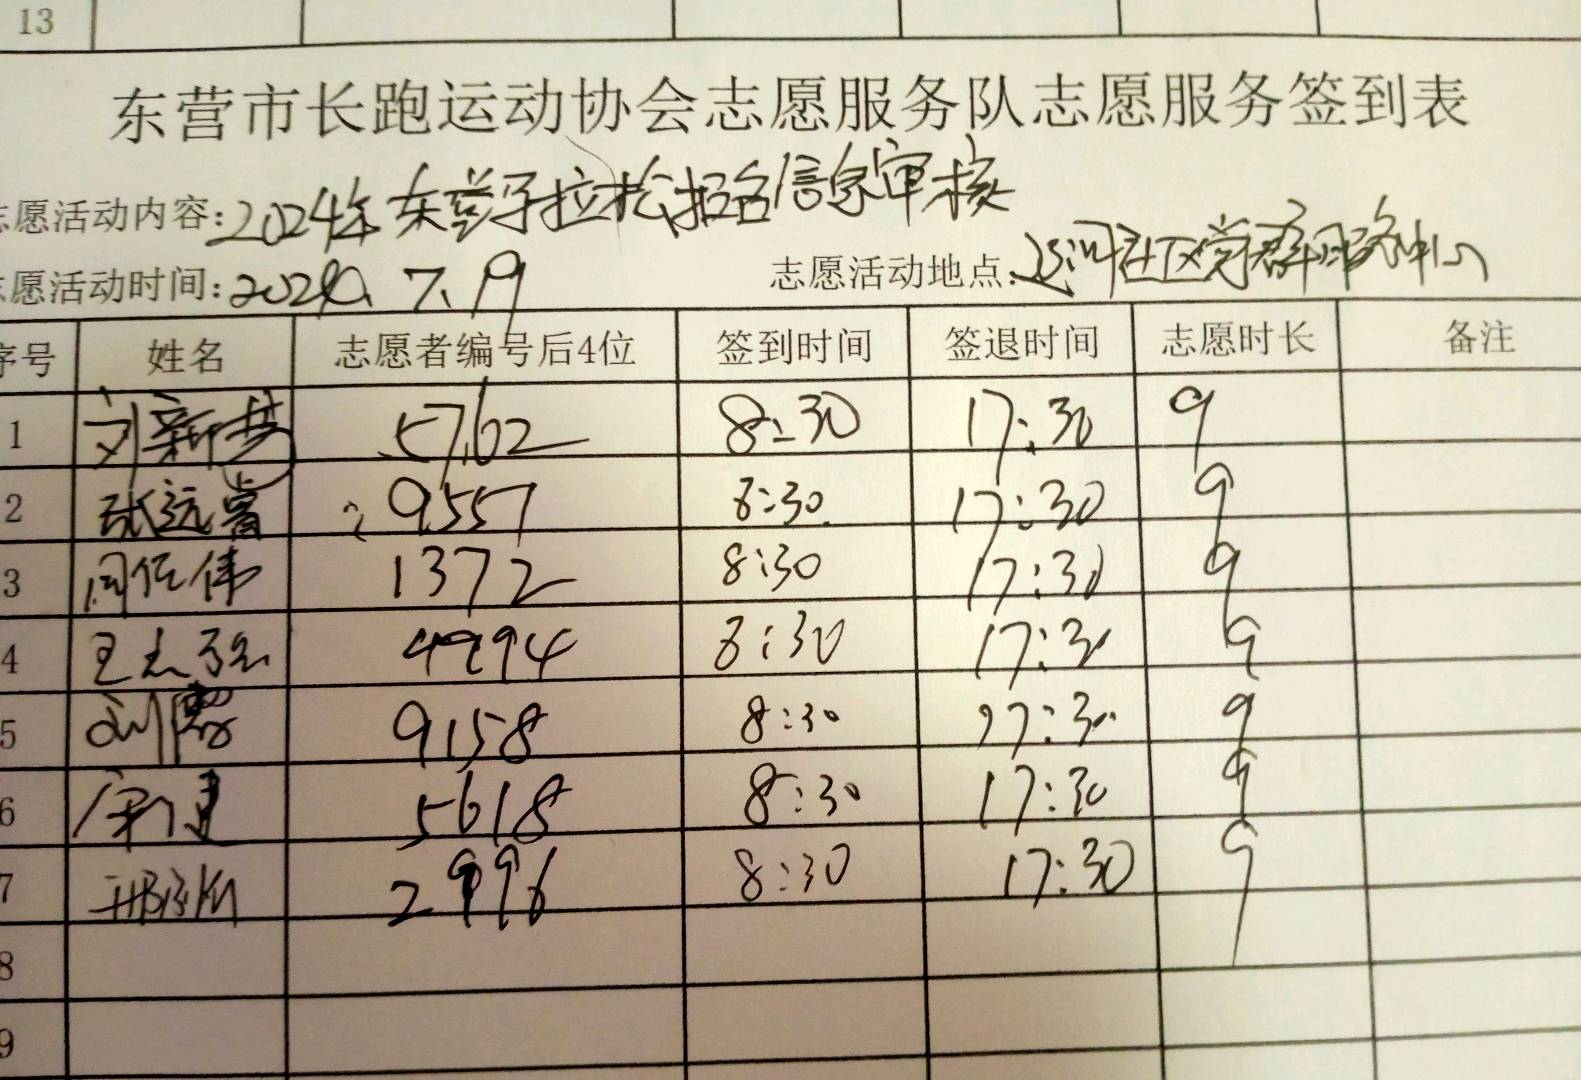 13
东营市长跑运动协会志愿服务队志愿服务签到表
志愿活动内容:2024年东营马拉松报名信息审核
志愿活动时间:2024.7.19 志愿活动地点:运河社区党群服务中心
序号 姓名 志愿者编号后4位 签到时间 签退时间 志愿时长 备注
1 刘新梦 5762 8:30 17:30 9
2 张远富 9557 8:30 17:30 9
3 周任伟 1372 8:30 17:30 9
4 王志强 4994 8:30 17:30 9
5 刘 9158 8:30 17:30 9
6 5618 8:30 17:30 9
7 2996 8:30 17:30 9
8
9